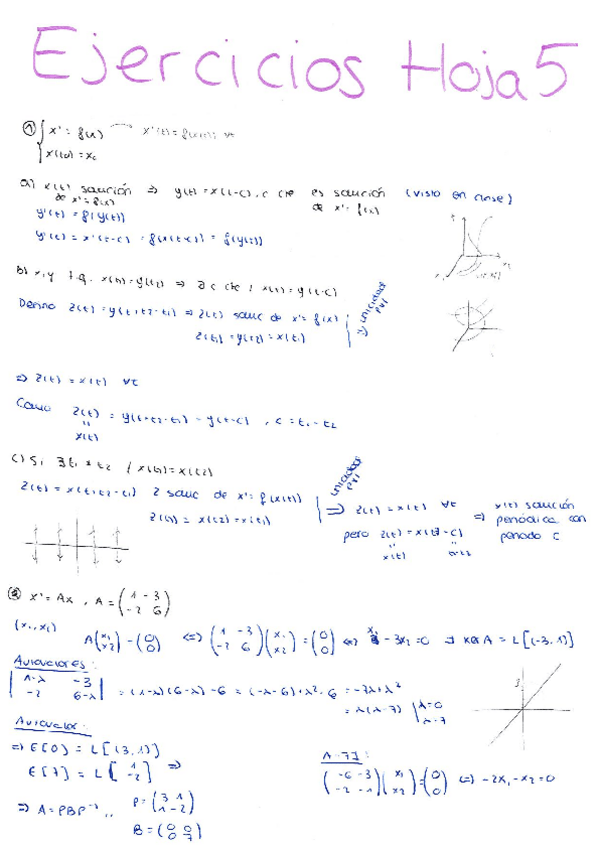 Ejercicios Hoja 5
① { x' = f(x) x'(t) = f(x(t)) ∀t
x(t0) = x0
a) x(t) solución ⇒ y(t) = x(t-c), c cte es solución (visto en clase)
de x' = f(x) de x' = f(x)
y'(t) = f(y(t))
y'(t) = x'(t-c) = f(x(t-c)) = f(y(t))
b) x, y t.q. x(t1) = y(t2) ⇒ ∃ c cte / x(t) = y(t-c)
Defino z(t) = y(t+t2-t1) ⇒ z(t) soluc de x' = f(x)
z(t1) = y(t2) = x(t1)
⇒ unicidad PVI
⇒ z(t) = x(t) ∀t
Como z(t) = y(t+t2-t1) = y(t-c), c = t1-t2
x(t)
c) Si ∃ t1 ≠ t2 / x(t1) = x(t2)
z(t) = x(t+t2-t1) z soluc de x' = f(x(t))
z(t1) = x(t2) = x(t1)
unicidad PVI
⇒ z(t) = x(t) ∀t ⇒ x(t) solución
pero z(t) = x(t-c) periódica con
x(t) periodo c
② x' = Ax, A = (1 -3
-2 6)
(x1, x2) A(x1 x2) = (0 0) ⇔ (1 -3 -2 6)(x1 x2) = (0 0) ⇔ x1 - 3x2 = 0 ⇒ Ker A = L[(3,1)]
Autovalores:
|1-λ -3
-2 6-λ| = (1-λ)(6-λ) - 6 = (-λ-6)+λ²-6 = -7λ+λ²
= λ(λ-7) | λ=0
λ=7
Autovector:
⇒ E[0] = L[(3,1)]
E[7] = L[1 -2] ⇒
⇒ A = PBP⁻¹, P = (3 1
1 -2)
B = (0 0
0 7)
A-7I:
(-6 -3
-2 -1)(x1 x2) = (0 0) ⇔ -2x1 - x2 = 0